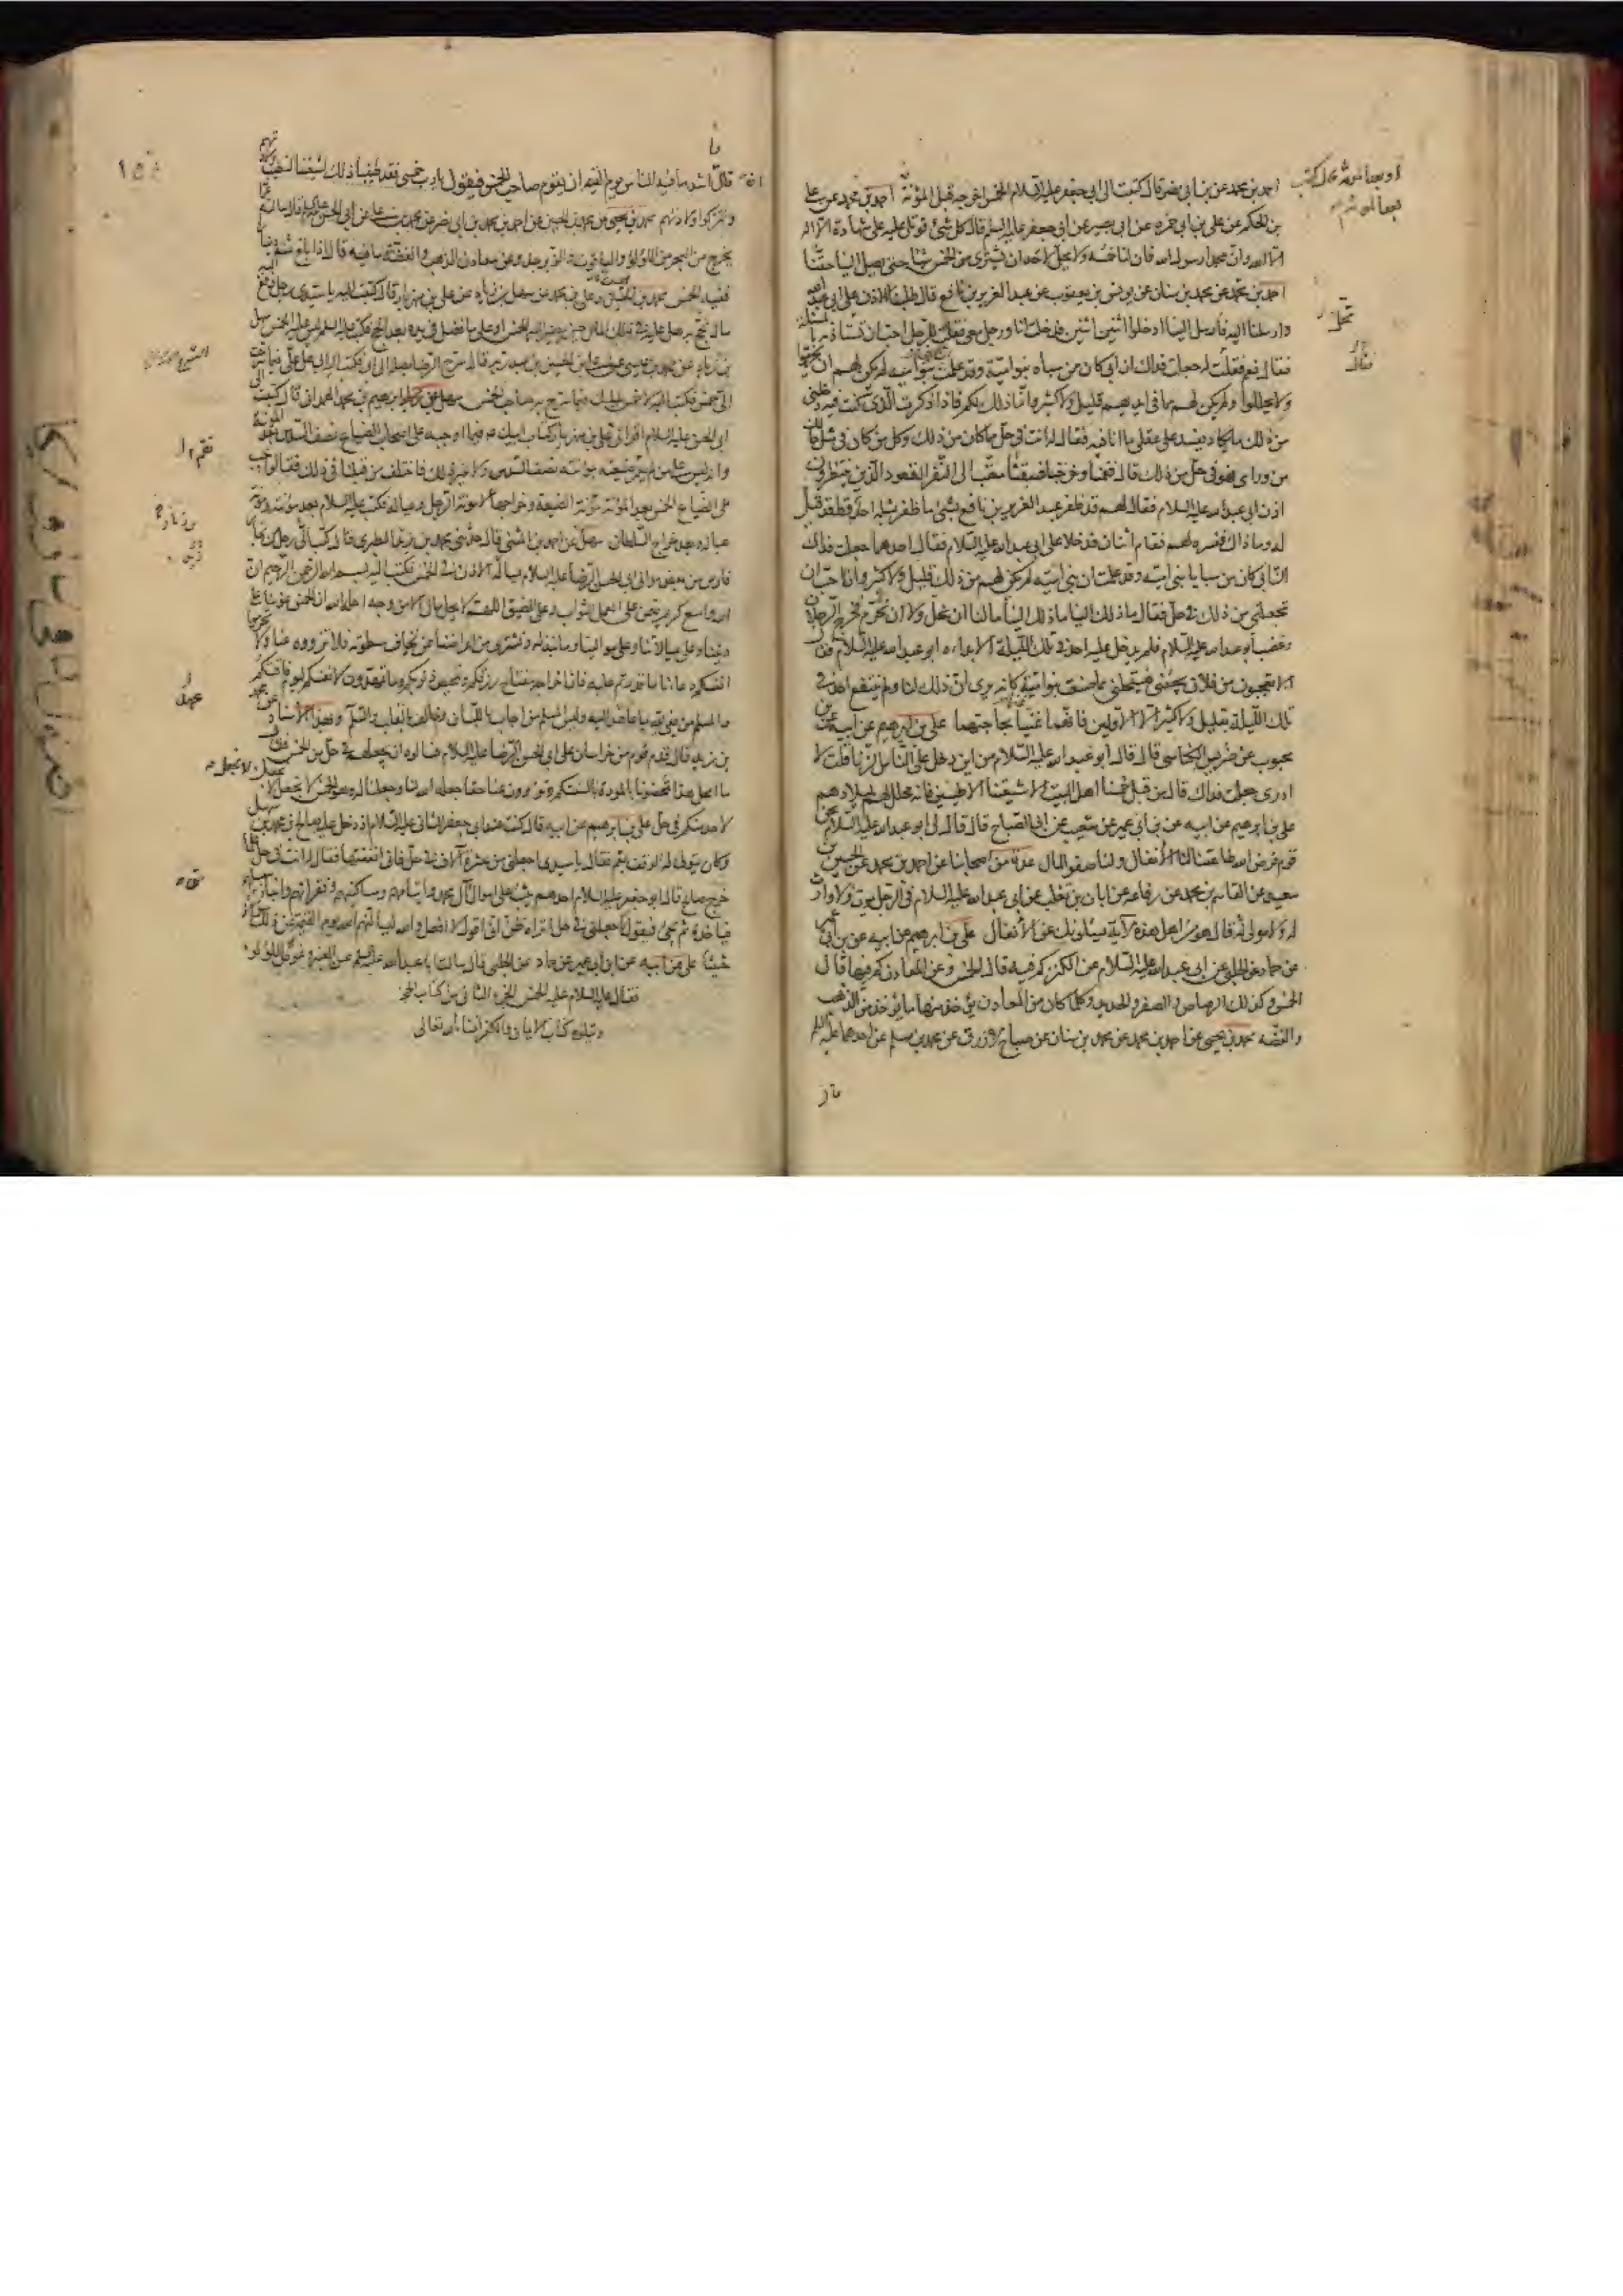 احمد بن محمد عن بن ابى نصر قال كتبت الى ابى جعفر عليه السلام الخمس اخرجه قبل المؤنة احمد بن محمد عن على
بن الحكم عن على بن ابى حمزه عن ابى بصير عن ابى جعفر عليه السلم قال كل شئ قوتل عليه على شهادة ان لا اله
الا الله وان محمدا رسول الله فان لنا خمسه ولا يحل لاحد ان يشترى من الخمس شيئا حتى يصل الينا حقنا
احمد بن محمد عن محمد بن سنان عن يونس بن يعقوب عن عبد العزيز بن نافع قال طلبنا الاذن على ابى عبد الله
وارسلنا اليه فارسل الينا ادخلوا اثنين اثنين فدخلت انا ورجل معى فقلت للرجل احب ان تستاذن بالمسئلة
فقال نعم فقال له جعلت فداك ان ابى كان من سباه بنو امية وقد علمت بنو امية لم يكن لهم ان يحرموا
ولا يحللوا ولم يكن لهم مما فى ايديهم قليل ولا كثير وانما ذلك لكم فاذا ذكرت الذى كنت فيه دخلنى
من ذلك ما يكاد يفسد على عقلى ما انا فيه فقال له انت فى حل مما كان من ذلك وكل من كان فى مثل حالك
من ورائى فهو فى حل من ذلك قال فقمنا وخرجنا فسبقنا معتب الى النفر القعود الذين ينتظرون
اذن ابى عبد الله عليه السلام فقال لهم قد ظفر عبد العزيز بن نافع بشئ ما ظفر بمثله احد قط قد قيل
له وما ذاك ففسره لهم فقام اثنان فدخلا على ابى عبد الله عليه السلام فقال احدهما جعلت فداك
ان ابى كان من سبايا بنى امية وقد علمت ان بنى امية لم يكن لهم من ذلك قليل ولا كثير وانا احب ان
تجعلنى من ذلك فى حل فقال ما ذلك الينا ما ذلك الينا ما لنا ان نحل ولا ان نحرم فخرج الرجلان
وغضب ابو عبد الله عليه السلام فلم يدخل عليه احد فى تلك الليلة الا بداه ابو عبد الله عليه السلام فقال
الا تعجبون من فلان يجيئنى فيستحلنى مما صنعت بنو امية كانه يرى ان ذلك لنا ولم ينتفع احد فى
تلك الليلة بقليل ولا كثير الا الاولين فانهما غنيا بحاجتهما على بن ابرهيم عن ابيه عن بن
محبوب عن ضريس الكناسى قال قال ابو عبد الله عليه السلام من اين دخل على الناس الزنا قلت لا
ادرى جعلت فداك قال من قبل خمسنا اهل البيت الا شيعتنا الاطيبين فانه محلل لهم لميلادهم
على بن ابرهيم عن ابيه عن بن ابى عمير عن شعيب عن ابى الصباح قال قال لى ابو عبد الله عليه السلام نحن
قوم فرض الله طاعتنا لنا الانفال ولنا صفو المال عدة من اصحابنا عن احمد بن محمد عن الحسين بن
سعيد عن القاسم بن محمد عن رفاعه عن ابان بن تغلب عن ابى عبد الله عليه السلام فى الرجل يموت ولا وارث
له ولا مولى له قال هو من اهل هذه الاية يسئلونك عن الانفال على بن ابرهيم عن ابيه عن بن ابى عمير
عن حماد عن الحلبى عن ابى عبد الله عليه السلام عن الكنز كم فيه قال الخمس وعن المعادن كم فيها قال
الخمس وكذلك الرصاص والصفر والحديد وكلما كان من المعادن يؤخذ منها ما يؤخذ من الذهب
والفضه محمد بن يحيى عن احمد بن محمد عن محمد بن سنان عن صباح الازرق عن محمد بن مسلم عن احدهما عليه السلم
قال ان اشد ما فيه الناس يوم القيمه ان يقوم صاحب الخمس فيقول يا رب خمسى فقد طيبنا ذلك لشيعتنا لتطيب
ولتزكوا ولادتهم محمد بن يحيى عن محمد بن الحسين عن احمد بن محمد بن ابى نصر عن محمد بن على عن ابى الحسن عليه السلم قال سالته عما
يخرج من البحر من اللؤلؤ والياقوت والزبرجد وعن معادن الذهب والفضة ما فيه قال اذا بلغ ثمنه دينارا
ففيه الخمس محمد بن الحسين وعلى بن محمد عن سهل بن زياد عن على بن مهزيار قال كتبت اليه يا سيدى رجل دفع اليه
مال يحج به هل عليه فى ذلك المال حين يصير اليه الخمس او على ما فضل فى يده بعد الحج فكتب عليه السلم ليس عليه الخمس سهل
بن زياد عن محمد بن عيسى عن على بن الحسين بن عبد ربه قال سرح الرضا بصلة الى ابى فكتب اليه ابى هل على فيما سرحت
الى خمس فكتب اليه لا خمس عليك فيما سرح به صاحب الخمس سهل عن ابرهيم بن محمد الهمدانى قال كتبت الى
ابى الحسن عليه السلام اقرانى على بن مهزيار كتاب ابيك ع فيما اوجبه على اصحاب الضياع نصف السدس بعد المؤنة
وانه ليس على من لم تقم ضيعته بمؤنته نصف السدس ولا غير ذلك فاختلف من قبلنا فى ذلك فقالوا يجب
على الضياع الخمس بعد المؤنة مؤنة الضيعة وخراجها لا مؤنة الرجل وعياله فكتب عليه السلام بعد مؤنته ومؤنة
عياله وبعد خراج السلطان سهل عن احمد بن المثنى قال حدثنى محمد بن زيد الطبرى قال كتب رجل من تجار
فارس من بعض موالى ابى الحسن الرضا عليه السلام يساله الاذن فى الخمس فكتب اليه بسم الله الرحمن الرحيم ان
الله واسع كريم ضمن على العمل الثواب وعلى الضيق الهم لا يحل مال الا من وجه احله الله ان الخمس عوننا على
ديننا وعلى عيالاتنا وعلى موالينا وما نبذله ونشترى من اعراضنا ممن نخاف سطوته فلا تزووه عنا ولا تحرموا
انفسكم دعانا ما قدرتم عليه فان اخراجه مفتاح رزقكم وتمحيص ذنوبكم وما تمهدون لانفسكم ليوم فاقتكم
والمسلم من يفى لله بما عاهد اليه وليس المسلم من اجاب باللسان وخالف بالقلب والسلم وبهذا الاسناد عن محمد
بن زيد قال قدم قوم من خراسان على ابى الحسن الرضا عليه السلام فسالوه ان يجعلهم فى حل من الخمس فقال
ما امحل هذا تمحضونا بالمودة بالسنتكم وتزوون عنا حقا جعله الله لنا وجعلنا له وهو الخمس لا نجعل لا نجعل
لاحد منكم فى حل على بن ابرهيم عن ابيه قال كنت عند ابى جعفر الثانى عليه السلام اذ دخل عليه صالح بن محمد بن سهل
وكان يتولى له الوقف بقم فقال يا سيدى اجعلنى من عشرة آلاف فى حل فانى انفقتها فقال له انت فى حل فلما
خرج صالح قال ابو جعفر عليه السلام احدهم يثب على اموال آل محمد وايتامهم ومساكينهم وفقرائهم وابناء سبيلهم
فياخذه ثم يجئ فيقول اجعلنى فى حل اتراه ظن انى اقول لا افعل والله ليسالنهم الله يوم القيمة عن ذلك سؤالا
حثيثا على عن ابيه عن ابن ابى عمير عن حماد عن الحلبى قال سالت ابا عبد الله عليه السلم عن العنبر وغوص اللؤلؤ
فقال عليه السلام عليه الخمس الجزء الثانى من كتاب الحجة
ويتلوه كتاب الايمان والكفر انشاء الله تعالى